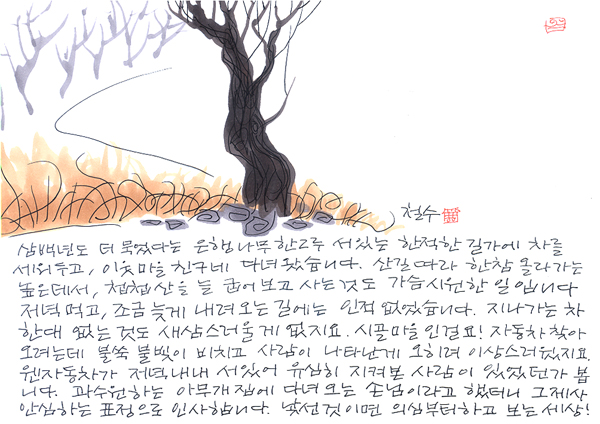 철수
삼백년도 더 묵었다는 은행나무 한그루 서있는 한적한 길가에 차를
세워두고, 이웃마을 친구네 다녀왔습니다. 산길 따라 한참 올라가는
높은데서, 첩첩산을 늘 굽어보고 사는것도 가슴 시원한 일입니다
저녁먹고, 조금 늦게 내려오는 길에는 인적 없었습니다. 지나가는 차
한대 없는 것도 새삼스러울게 없지요. 시골마을인걸요! 자동차 찾아
오려는데 불쑥 불빛이 비치고 사람이 나타난게 오히려 이상스러웠지요.
웬 자동차가 저녁내내 서있어 유심히 지켜본 사람이 있었던가 봅
니다. 과수원하는 아무개집에 다녀오는 손님이라고 했더니 그제사
안심하는 표정으로 인사합니다. 낯선것이면 의심부터하고 보는 세상!